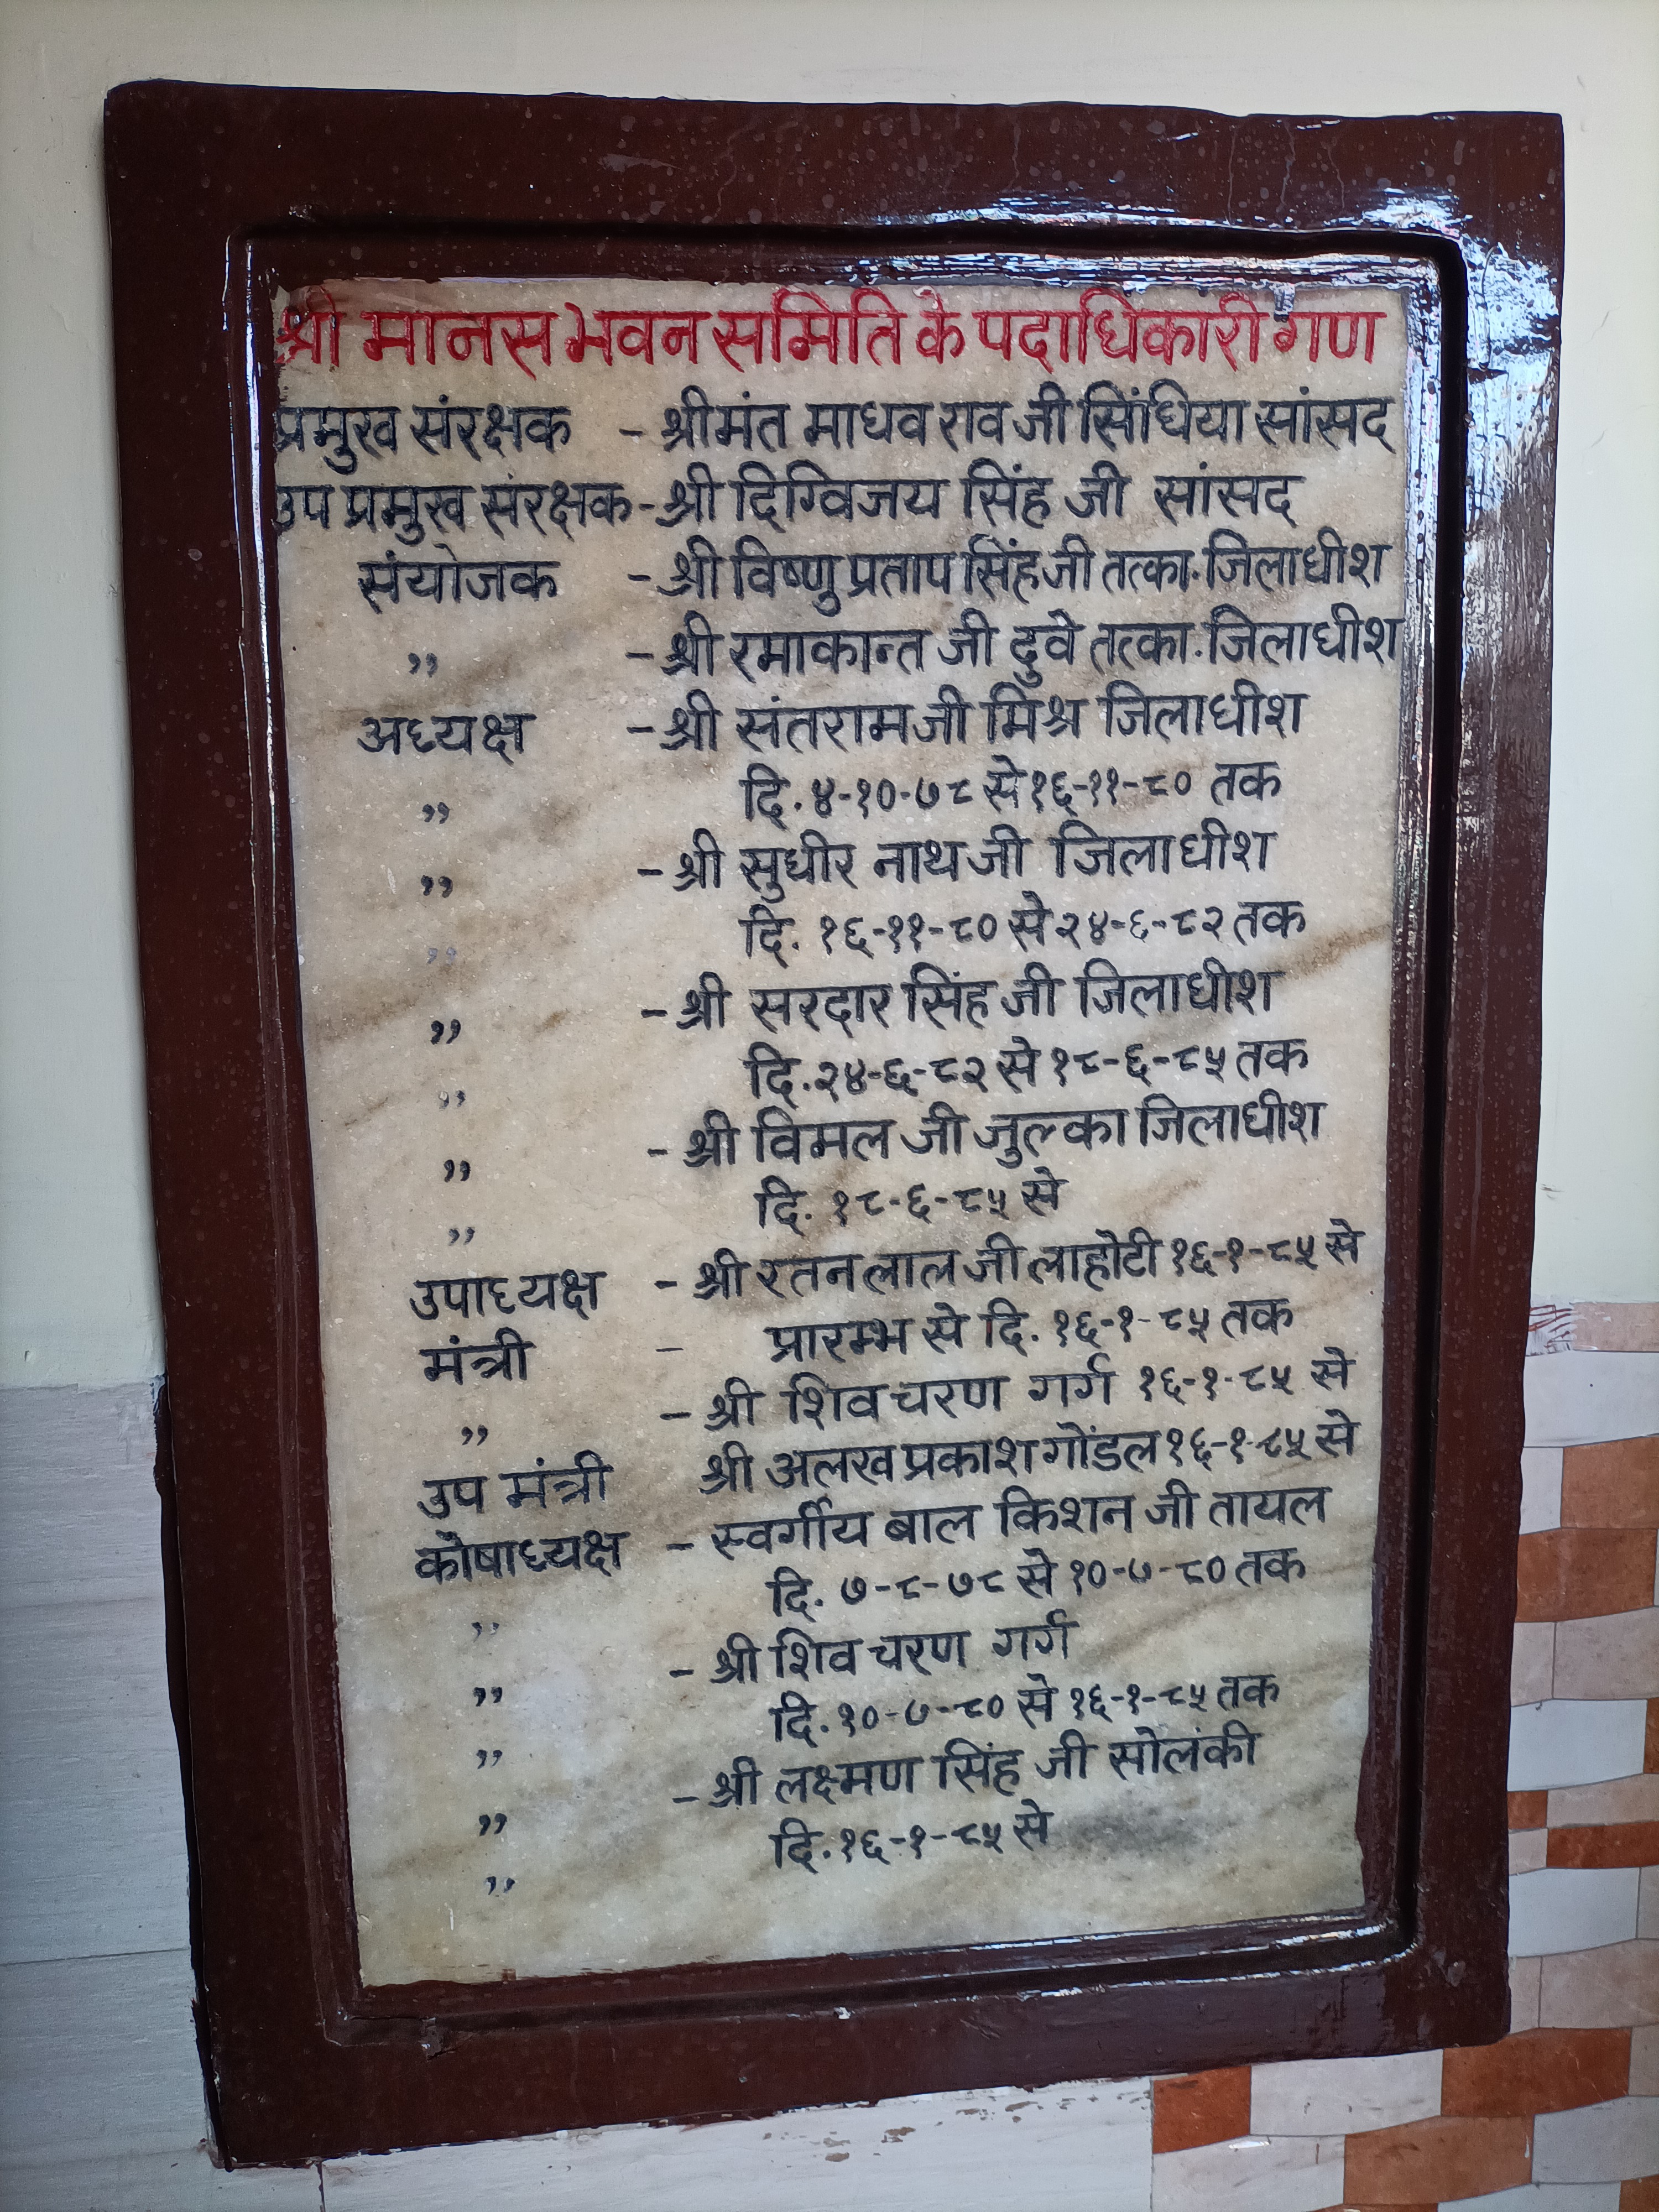 श्री मानस भवन समिति के पदाधिकारी गण
प्रमुख संरक्षक - श्रीमंत माधव राव जी सिंधिया सांसद
उप प्रमुख संरक्षक - श्री दिग्विजय सिंह जी सांसद
संयोजक - श्री विष्णु प्रताप सिंह जी तत्का. जिलाधीश
,, - श्री रमाकान्त जी दुवे तत्का. जिलाधीश
अध्यक्ष - श्री संतराम जी मिश्र जिलाधीश
,, दि. ४-१०-७८ से १६-११-८० तक
,, - श्री सुधीर नाथ जी जिलाधीश
,, दि. १६-११-८० से २४-६-८२ तक
,, - श्री सरदार सिंह जी जिलाधीश
,, दि. २४-६-८२ से १८-६-८५ तक
,, - श्री विमल जी जुल्का जिलाधीश
,, दि. १८-६-८५ से
उपाध्यक्ष - श्री रतन लाल जी लाहोटी १६-१-८५ से
मंत्री - प्रारम्भ से दि. १६-१-८५ तक
,, - श्री शिव चरण गर्ग १६-१-८५ से
उप मंत्री श्री अलख प्रकाश गोंडल १६-१-८५ से
कोषाध्यक्ष - स्वर्गीय बाल किशन जी तायल
,, दि. ७-८-७८ से १०-७-८० तक
,, - श्री शिव चरण गर्ग
,, दि. १०-७-८० से १६-१-८५ तक
,, - श्री लक्ष्मण सिंह जी सोलंकी
,, दि. १६-१-८५ से